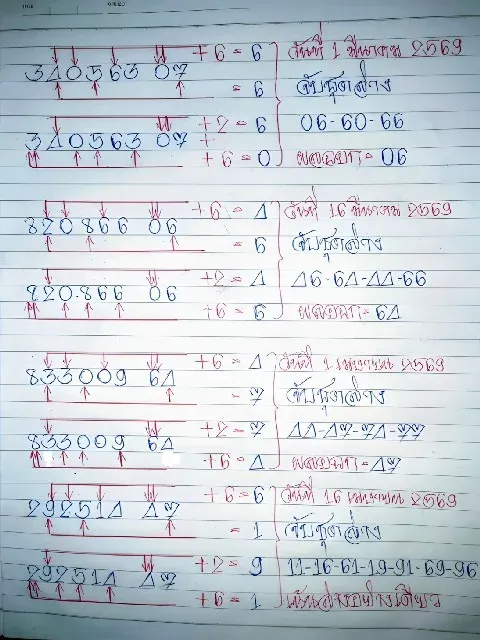 + 6 = 6 วันที่ 1 มีนาคม 2569
340563 07 = 6 จับชุดล่าง
+ 2 = 6 06-60-66
340563 07 +
+ 6 = 0 ผลออก = 06
+ 6 = 4 วันที่ 16 มีนาคม 2569
820866 06 = 6 จับชุดล่าง
+ 2 = 4 46-64-44-66
820866 06 + 6 = 6 ผลออก = 64
+ 6 = 4 วันที่ 1 เมษายน 2569
833009 64 = 7 จับชุดล่าง
+ 2 = 7 44-47-74-77
833009 64 + 6 = 4 ผลออก = 47
+ 6 = 6 วันที่ 16 เมษายน 2569
292514 47 = 1 จับชุดล่าง
+ 2 = 9 11-16-61-19-91-69-96
292514 47 + 6 = 1